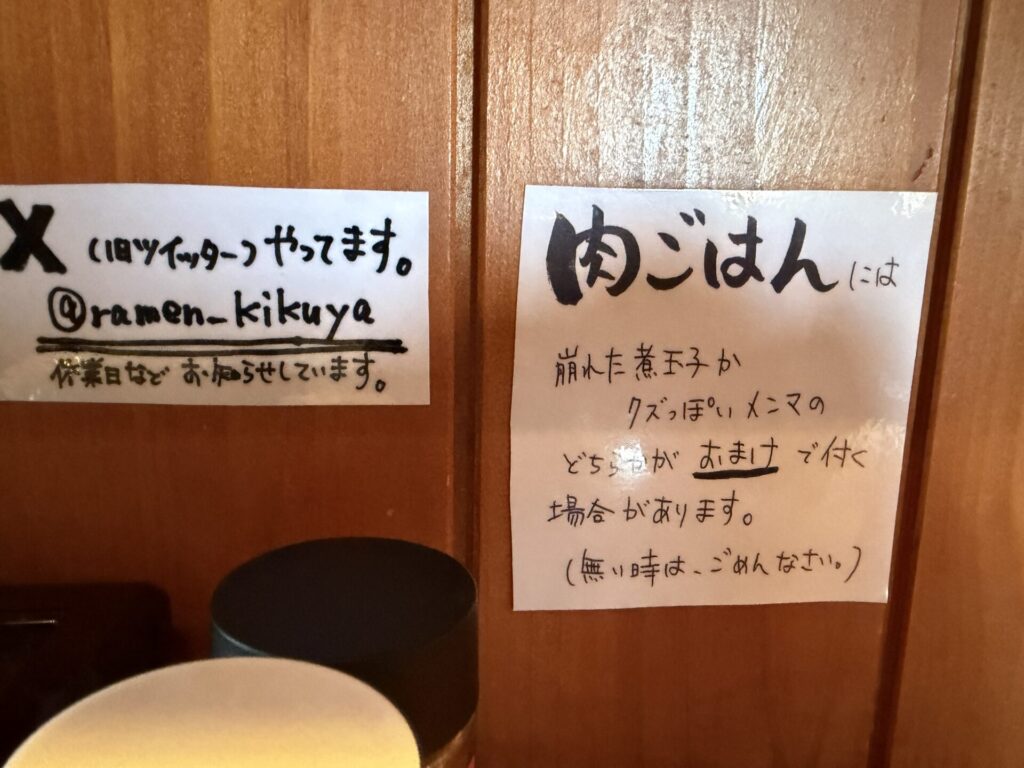 X (旧ツイッター)やってます。
@ramen_kikuya
休業日など お知らせしています。
肉ごはんには
崩れた煮玉子か
クズっぽいメンマの
どちらかが おまけ で付く
場合があります。
(無い時は、ごめんなさい。)